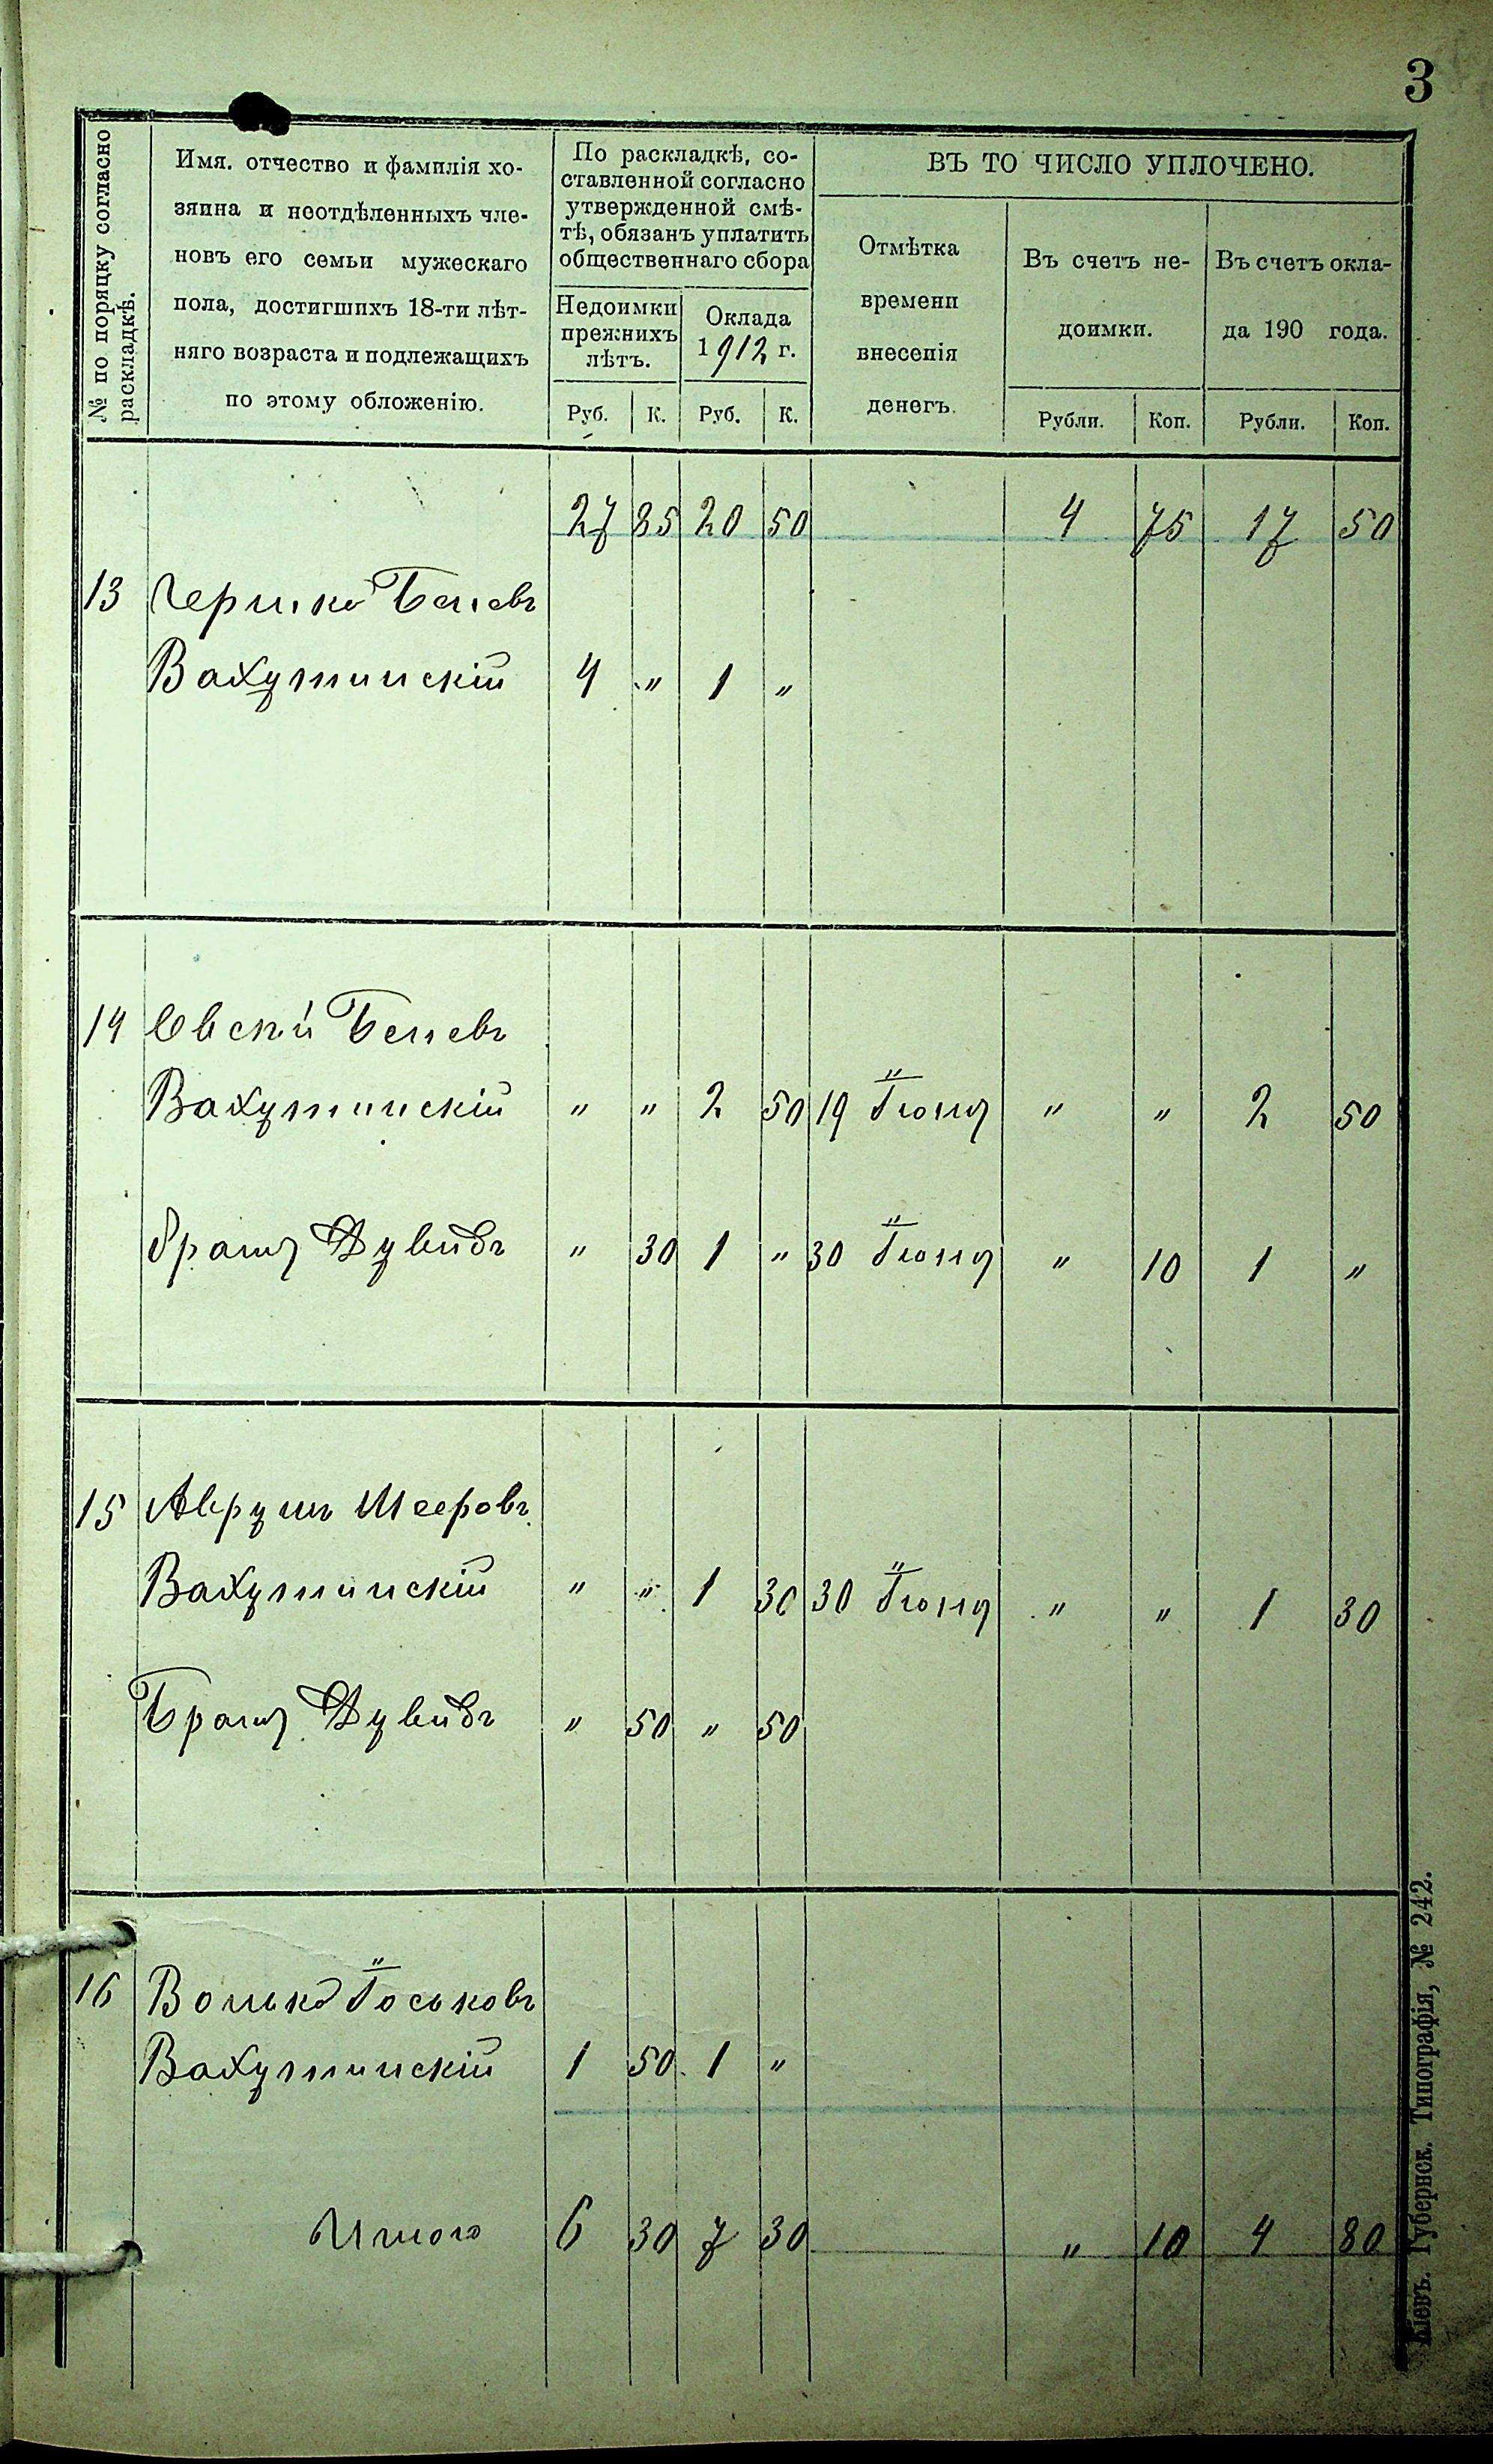 3
№ по поряцку согласно
раскладкѣ.
Имя. отчество и фамилія хо-
зяина и неотдѣленныхъ чле-
новъ его семьи мужескаго
пола, достигшихъ 18-ти лѣт-
няго возраста и подлежащихъ
по этому обложенію.
По раскладкѣ, со-
ставленной согласно
утвержденной смѣ-
тѣ, обязанъ уплатить
общественнаго сбора
Недоимки
прежнихъ
лѣтъ.
Оклада
1912 г.
Руб. К. Руб. К.
ВЪ ТО ЧИСЛО УПЛОЧЕНО.
Отмѣтка
времени
внесенія
денегъ.
Въ счетъ не-
доимки.
Въ счетъ окла-
да 190 года.
Рубли. Коп. Рубли. Коп.
27 85 20 50 4 75 17 50
13 Гершко Беневъ
Вахутинскій 4 " 1 "
14 Овсѣй Беневъ
Вахутинскій " " 2 50 19 Іюня " " 2 50
братъ Дувидъ " 30 1 " 30 Іюня " 10 1 "
15 Аврумъ Мееровъ
Вахутинскій " " 1 30 30 Іюня " " 1 30
Братъ Дувидъ " 50 " 50
16 Волько Іоськовъ
Вахутинскій 1 50 1 "
Итого 6 30 7 30 " 10 4 80
Кіевъ. Губернск. Типографія, № 242.